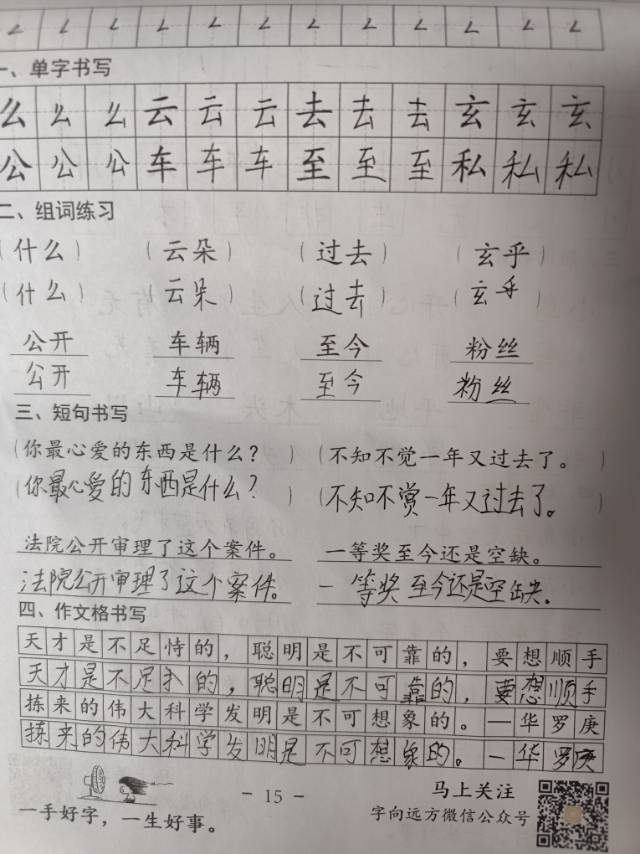 ㄥ ㄥ ㄥ ㄥ ㄥ ㄥ ㄥ ㄥ ㄥ ㄥ ㄥ ㄥ
一、单字书写
么 么 么 云 云 云 去 去 去 玄 玄 玄
公 公 公 车 车 车 至 至 至 私 私 私
二、组词练习
(什么) (云朵) (过去) (玄乎)
(什么) (云朵) (过去) (玄乎)
公开 车辆 至今 粉丝
公开 车辆 至今 粉丝
三、短句书写
(你最心爱的东西是什么? ) (不知不觉一年又过去了。 )
(你最心爱的东西是什么? ) (不知不赏一年又过去了。 )
法院公开审理了这个案件。 一等奖至今还是空缺。
法院公开审理了这个案件。 一等奖至今还是空缺.
四、作文格书写
天才是不足恃的,聪明是不可靠的,要想顺手
天才是不足的,聪明是不可靠的,要想顺手
拣来的伟大科学发明是不可想象的。—华罗庚
拣来的伟大科学发明是不可想象的。—华罗庚
一手好字,一生好事。
- 15 -
马上关注
字向远方微信公众号